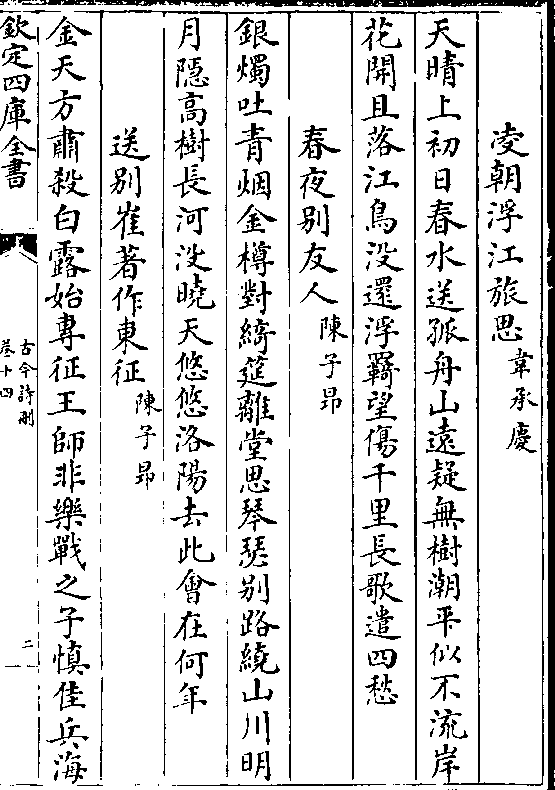 凌朝浮江旅思 韋承慶
天晴上初日春水送孤舟山遠疑無樹潮平似不流岸
花開且落江鳥没還浮羈望傷千里長歌遣四愁
春夜别友人 陳子昂
銀燭吐青烟金樽對綺筵離堂思琴瑟别路繞山川明
月隠髙樹長河没曉天悠悠洛陽去此㑹在何年
送别崔著作東征 陳子昂
金天方肅殺白露始專征王師非樂戰之子慎佳兵海
欽定四庫全書
古今詩刪
卷十四
二